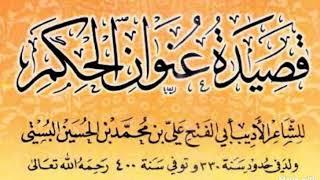 قصيدة عنوان الحكم
للشاعر الأديب أبي الفتح علي بن محمد بن الحسين البستي
ولد في حدود سنة ٣٣٠ وتوفي سنة ٤٠٠ رحمه الله تعالى